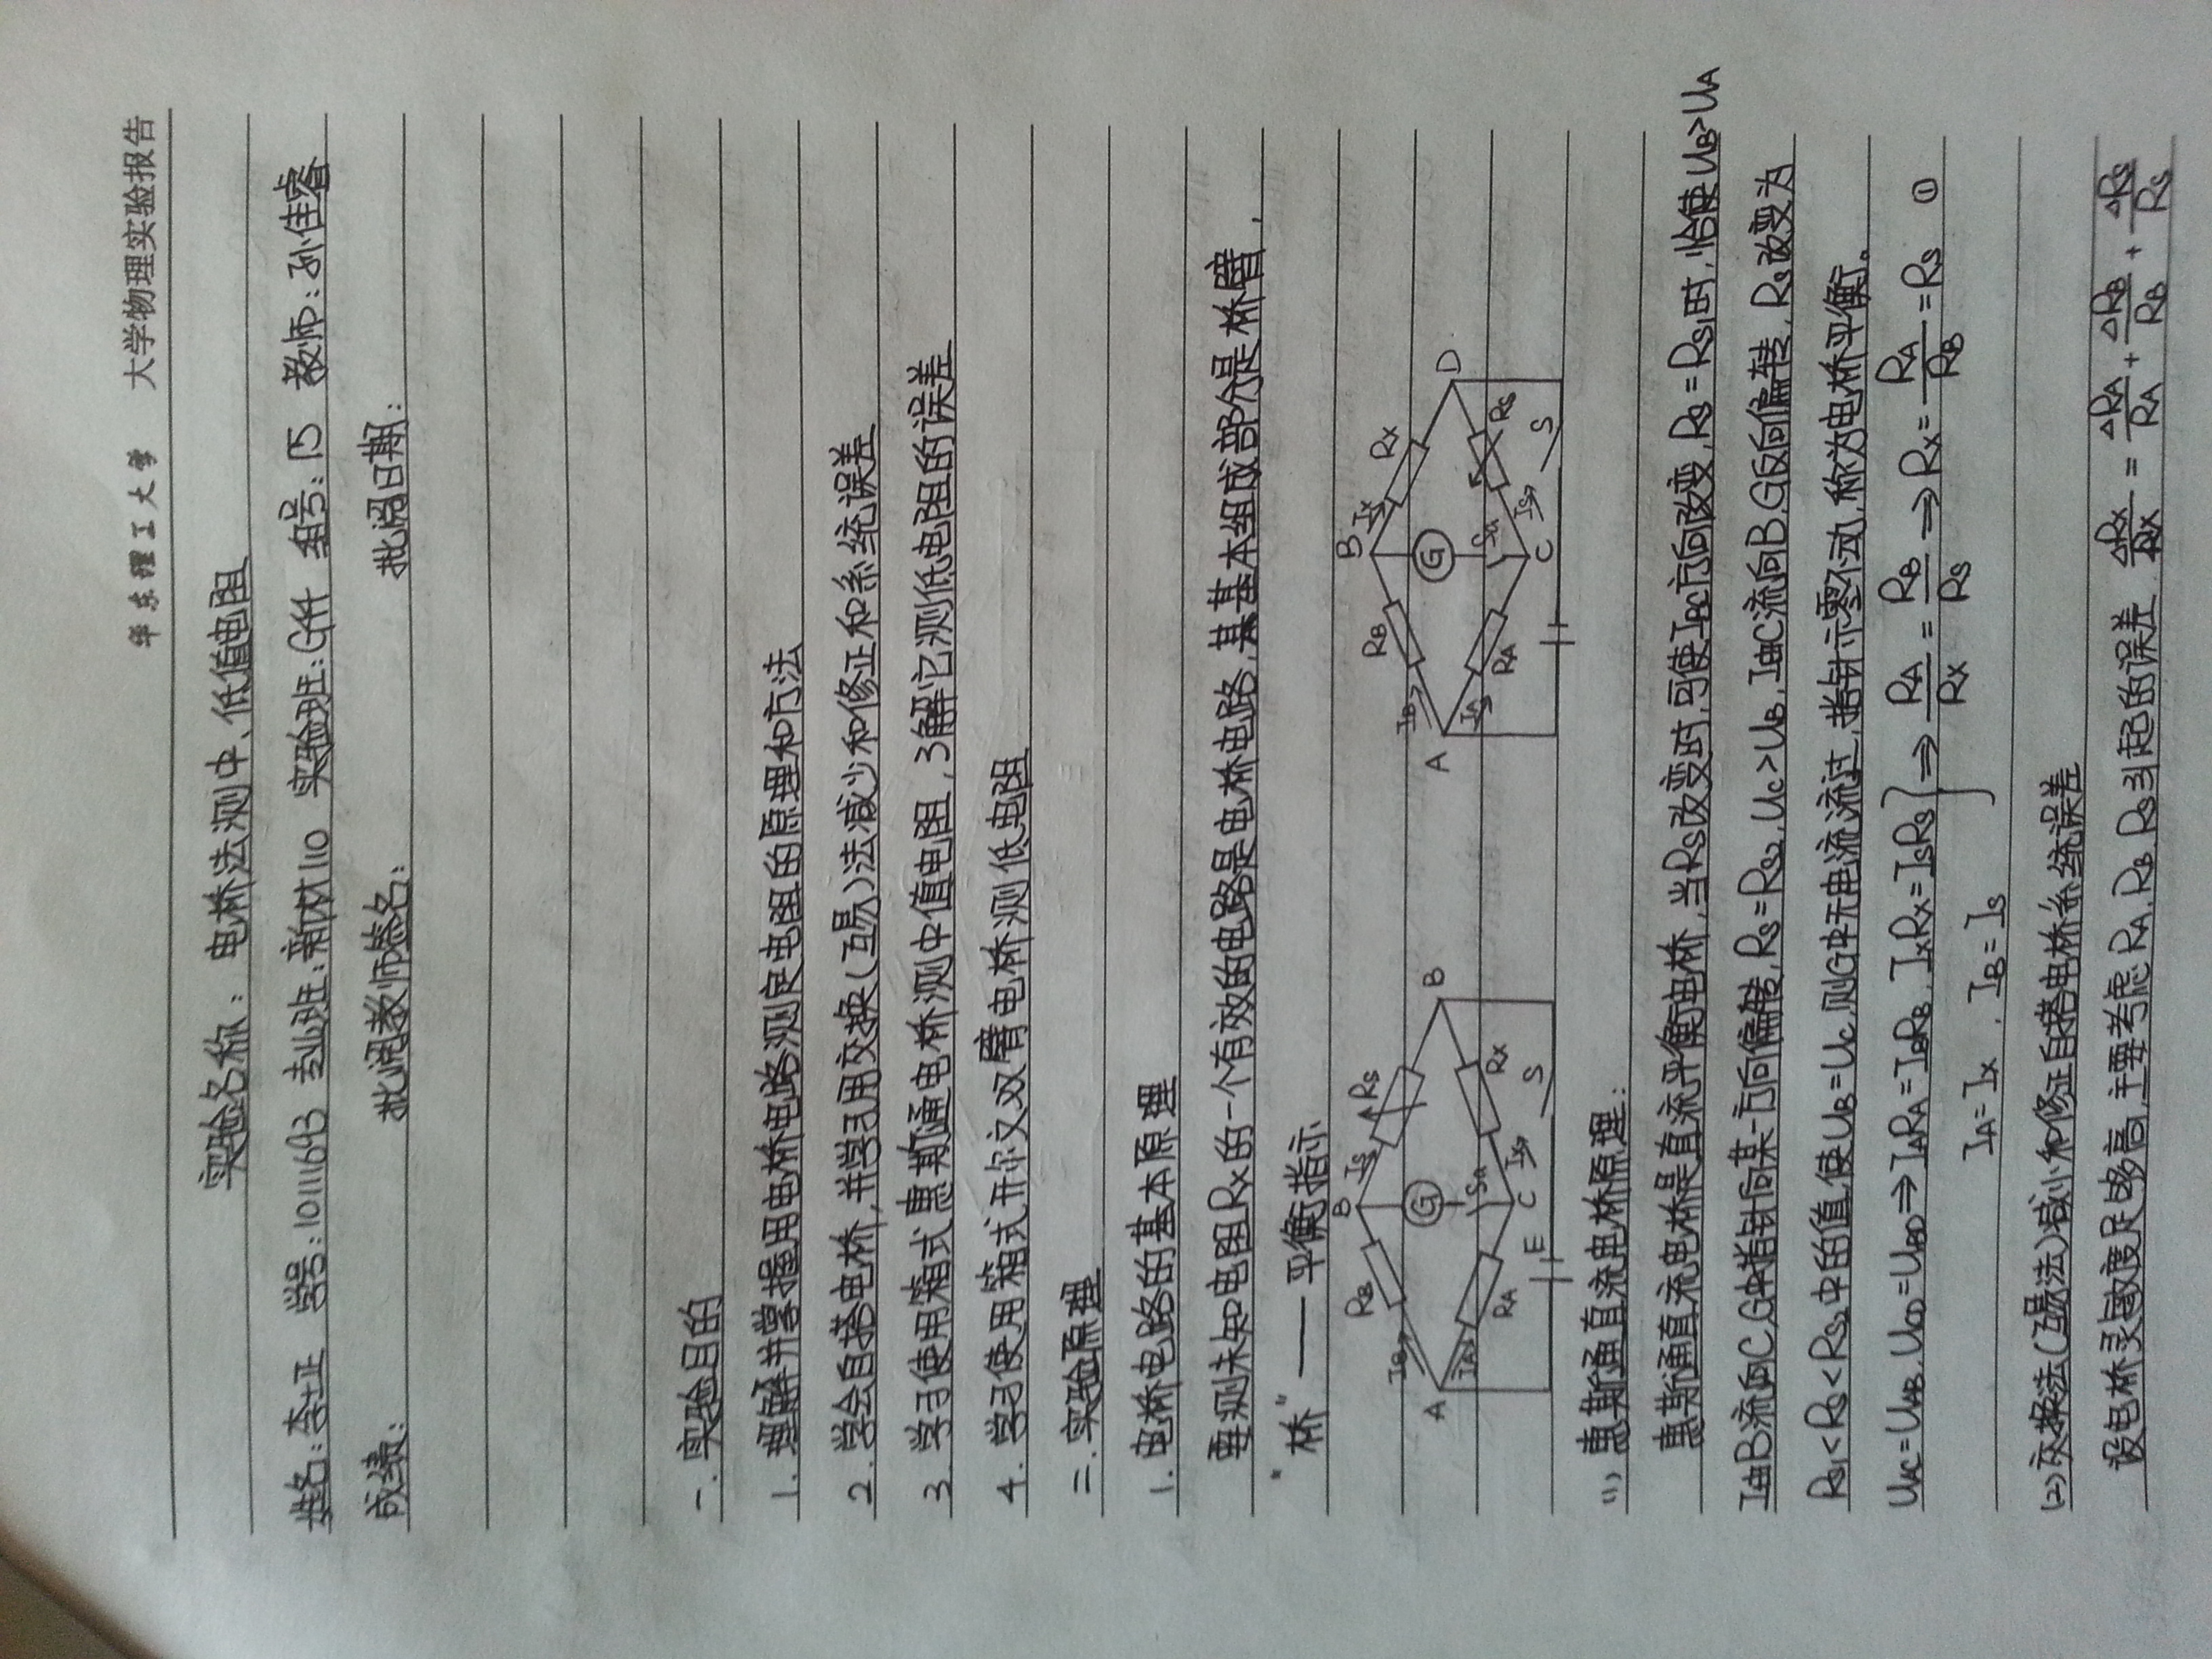 华东理工大学 大学物理实验报告
实验名称：电桥法测中、低值电阻
姓名：李士正 学号：10111693 专业班：新材110 实验班：G什 组号：15 教师：孙佳睿
成绩： 批阅教师签名： 批阅日期：
一.实验目的
1.理解并掌握用电桥电路测定电阻的原理和方法
2.学会自搭电桥,并学习用交换(互易)法减少和修正和系统误差
3.学习使用箱式惠斯通电桥测中值电阻,了解它测低电阻的误差
4.学习使用箱式开尔文双臂电桥测低电阻
二.实验原理
1.电桥电路的基本原理
要测未知电阻Rx的一个有效的电路是电桥电路,其基本组成部分是桥臂,
"桥"——平衡指示
RB B IS RS RB B IX RX
IB G IB G
A B A D
IA RA Sa RX IA RA Sa RS
E C IX S C IS S
(1)惠斯通直流电桥原理:
惠斯通直流电桥是直流平衡电桥,当RS改变时,可使IBC方向改变,RS=RS1时,恰使UB>UA
I由B流向C,G中指针向某一方向偏转,RS=RS2,UC>UB,I由C流向B,G反向偏转,RS改变为
RS1<RS<RS2中的值,使UB=UC,则G中无电流流过,指针示零不动,称为电桥平衡。
UAC=UAB,UCD=UBD⇒IARA=IBRB,IXRX=ISRS}⇒RA/RX=RB/RS⇒RX=RA/RB=RS ①
IA=IX,IB=IS
(2)交换法(互易法)减小和修正自搭电桥系统误差
设电桥灵敏度足够高,主要考虑RA,RB,RS引起的误差 ΔRX/RX=ΔRA/RA+ΔRB/RB+ΔRS/RS